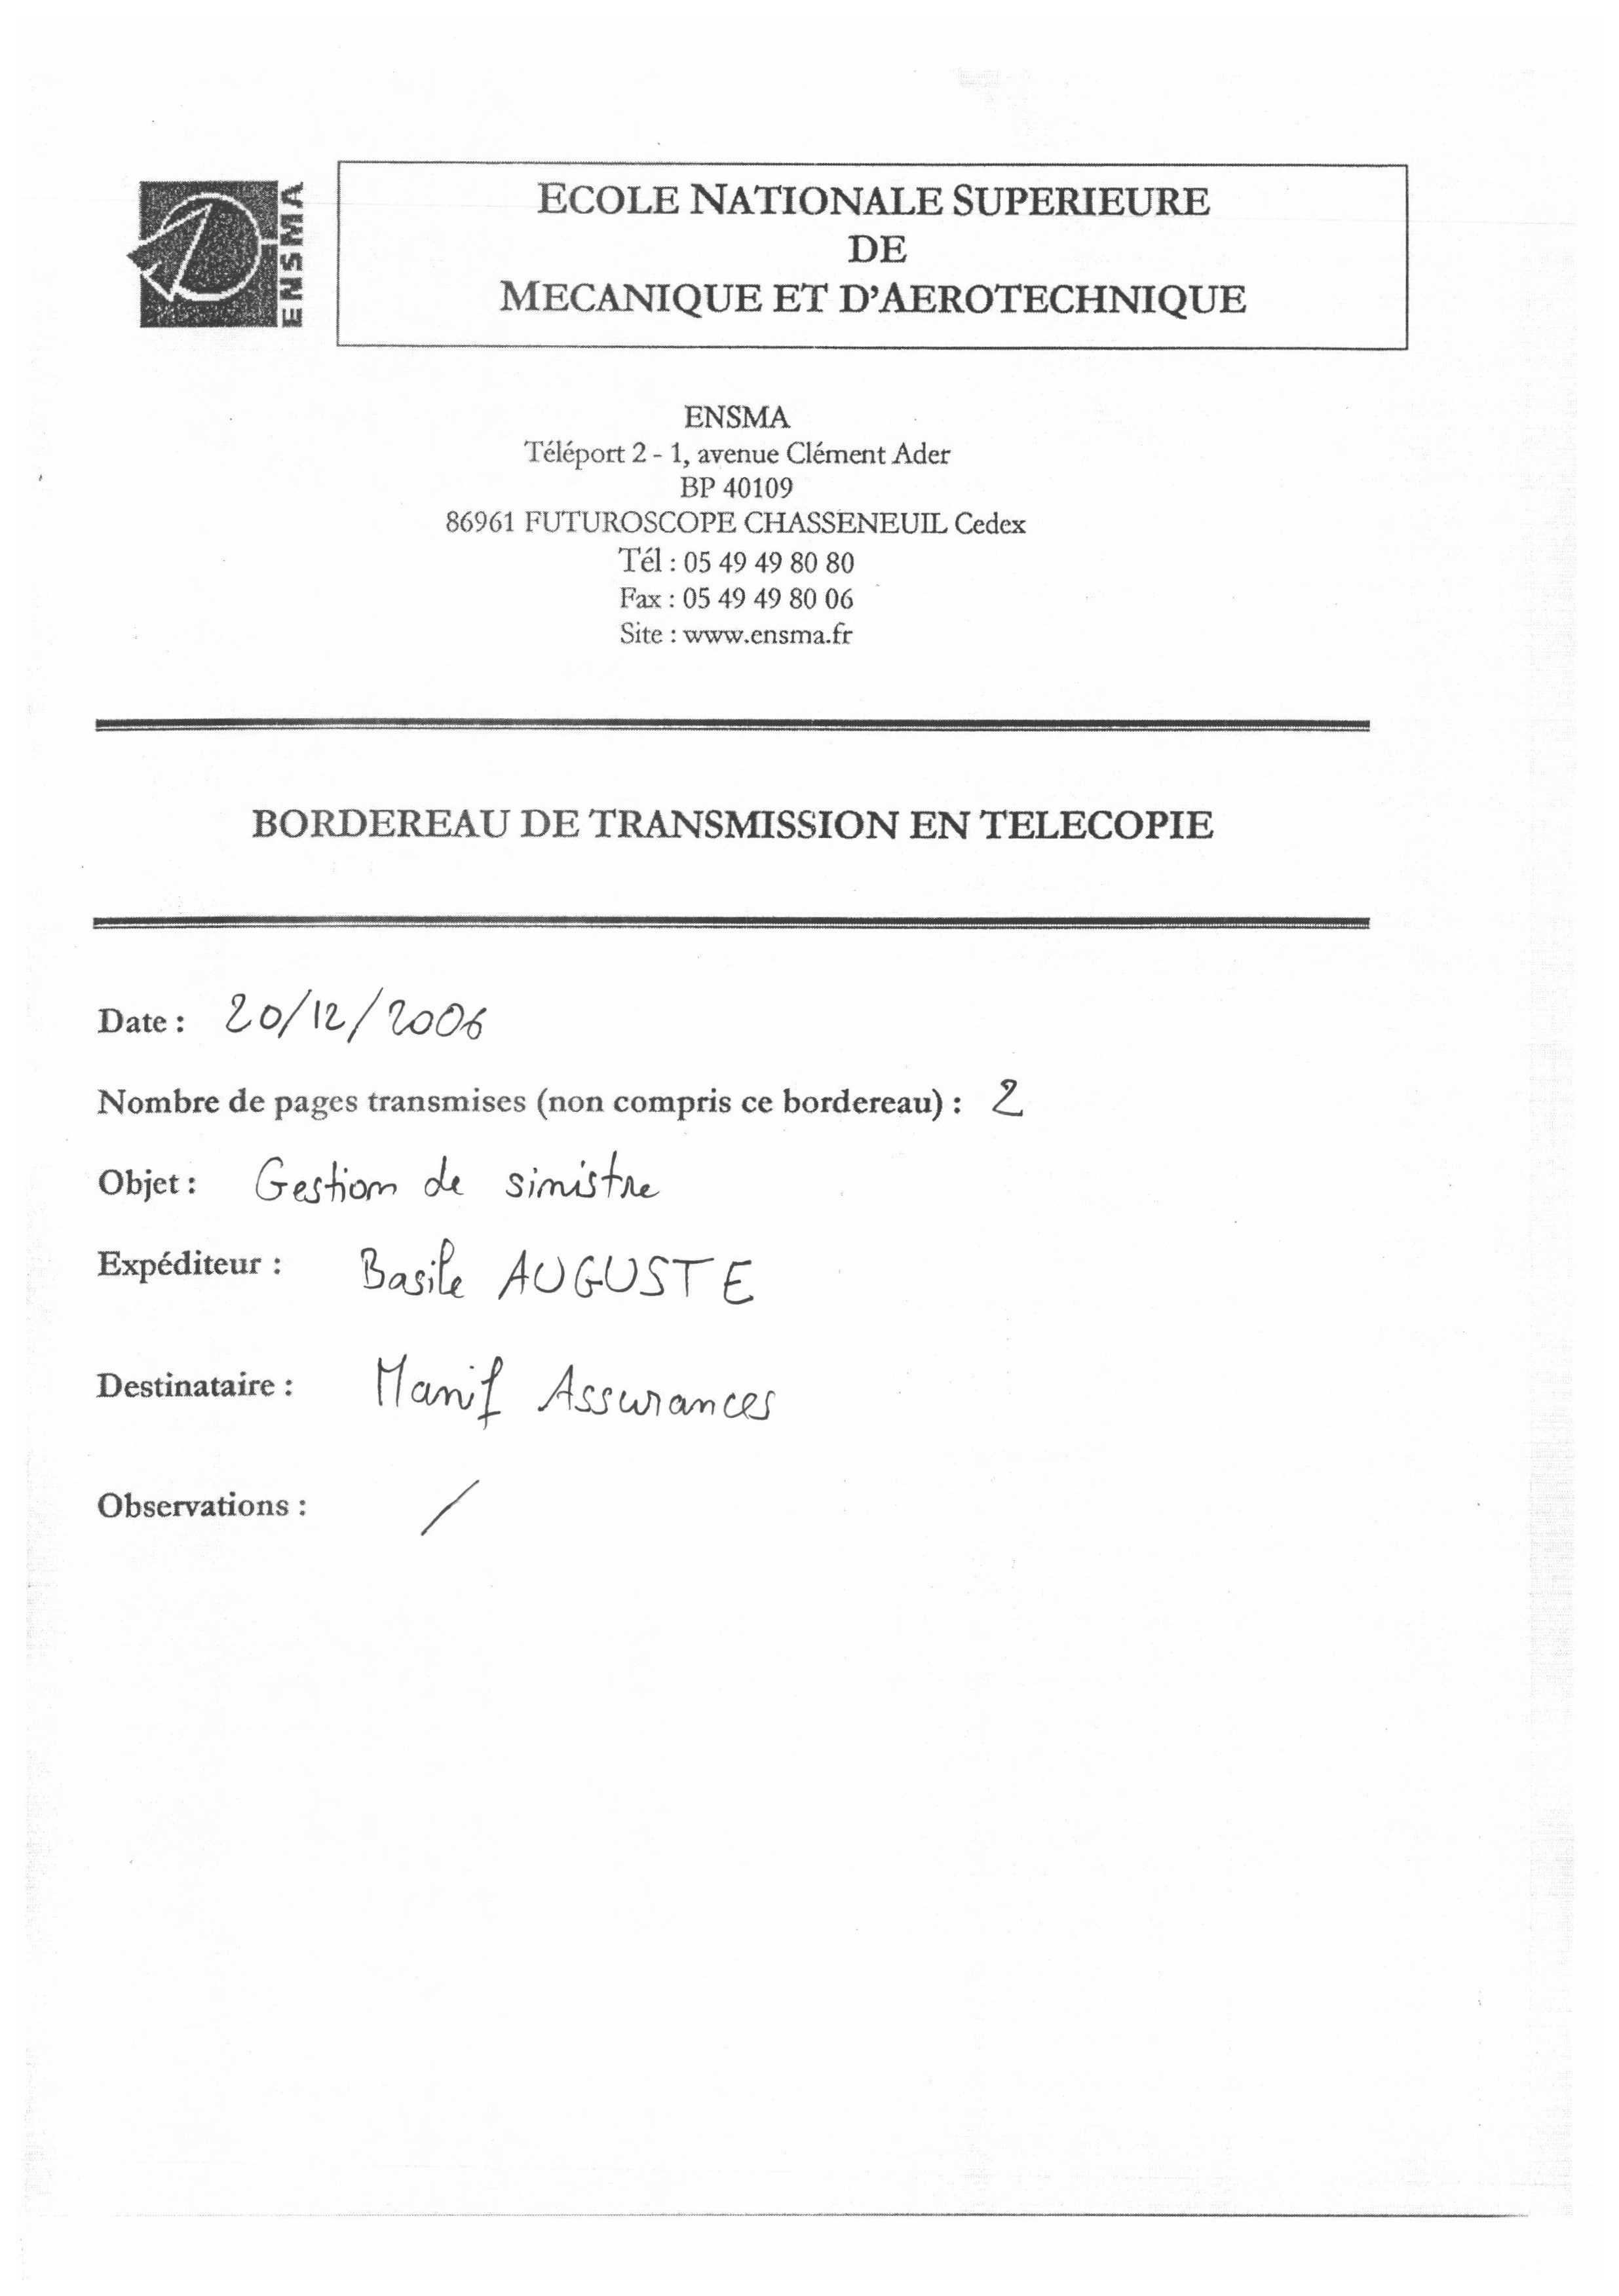 ENSMA
ECOLE NATIONALE SUPERIEURE
DE
MECANIQUE ET D'AEROTECHNIQUE
ENSMA
Téléport 2 - 1, avenue Clément Ader
BP 40109
86961 FUTUROSCOPE CHASSENEUIL Cedex
Tél : 05 49 49 80 80
Fax : 05 49 49 80 06
Site : www.ensma.fr
BORDEREAU DE TRANSMISSION EN TELECOPIE
Date : 20/12/2006
Nombre de pages transmises (non compris ce bordereau) : 2
Objet : Gestion de sinistre
Expéditeur : Basile AUGUSTE
Destinataire : Manif Assurances
Observations : /